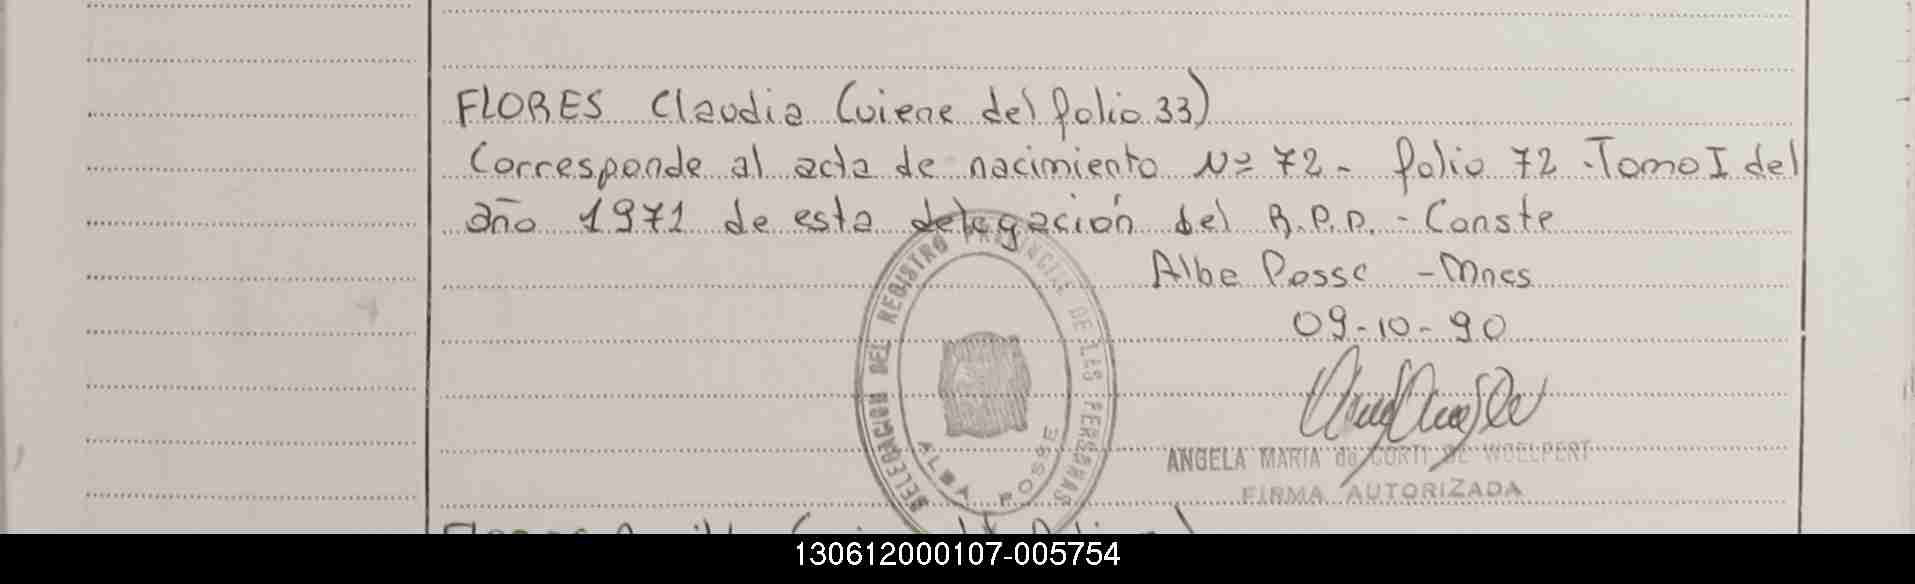 FLORES Claudia (viene del folio 33)
Corresponde al acta de nacimiento Nº 72 - folio 72 - Tomo I del
año 1971 de esta delegación del R.P.P. - Conste
Alba Posse - Mnes
09-10-90
DELEGACION DEL REGISTRO PROVINCIAL DE LAS PERSONAS
ALBA POSSE
ANGELA MARIA de CORTI DE WOELPERT
FIRMA AUTORIZADA
130612000107-005754